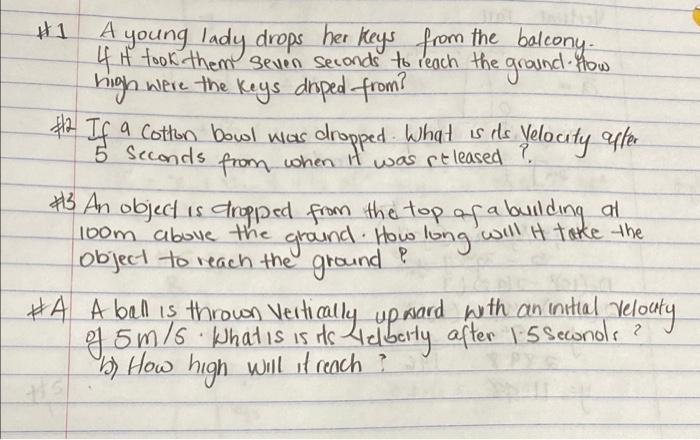 #1 A young lady drops her keys from the balcony.
If it took them seven seconds to reach the ground. How
high were the keys droped from?
#2 If a cotton bowl was dropped. What is its velocity after
5 seconds from when it was released ?.
#3 An object is dropped from the top of a building at
100m above the ground. How long will it take the
object to reach the ground ?
#4 A ball is thrown vertically upward with an initial velocity
of 5m/s. What is is its velocity after 1.5 seconds ?
b) How high will it reach ?